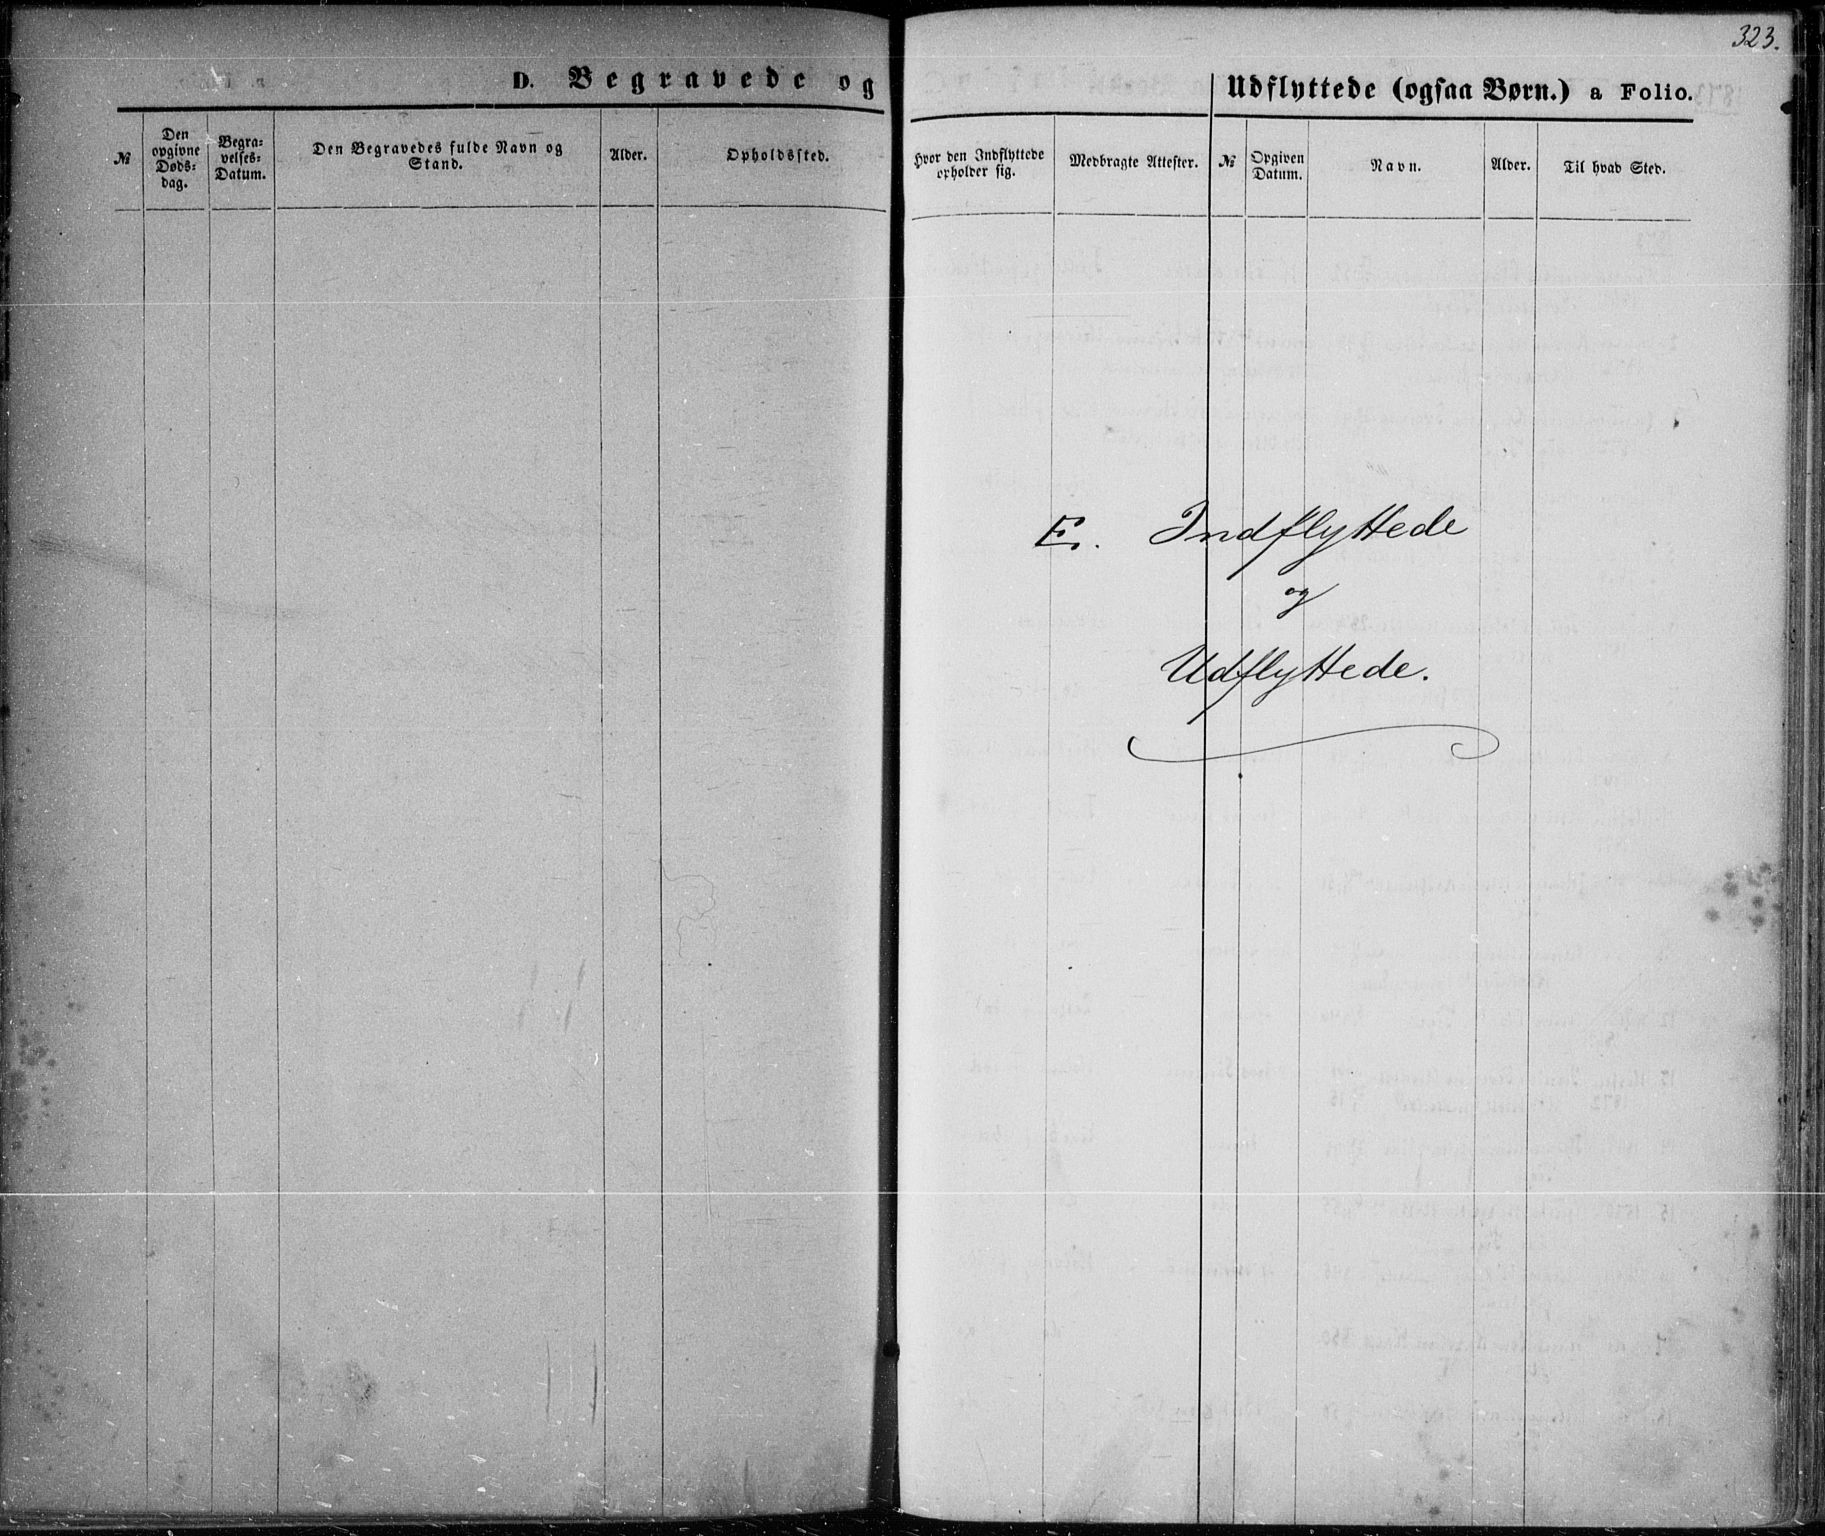 D. Begravede og
№
Den
opgivne
Døds-
dag.
Begra-
velses-
Datum.
Den Begravedes fulde Navn og
Stand.
Alder.
Opholdssted.
323.
Udflyttede (ogsaa Børn.) a Folio.
Hvor den Indflyttede
opholder sig.
Medbragte Attester.
№
Opgiven
Datum.
Navn.
Alder.
Til hvad Sted.
E. Indflyttede
og
Udflyttede.